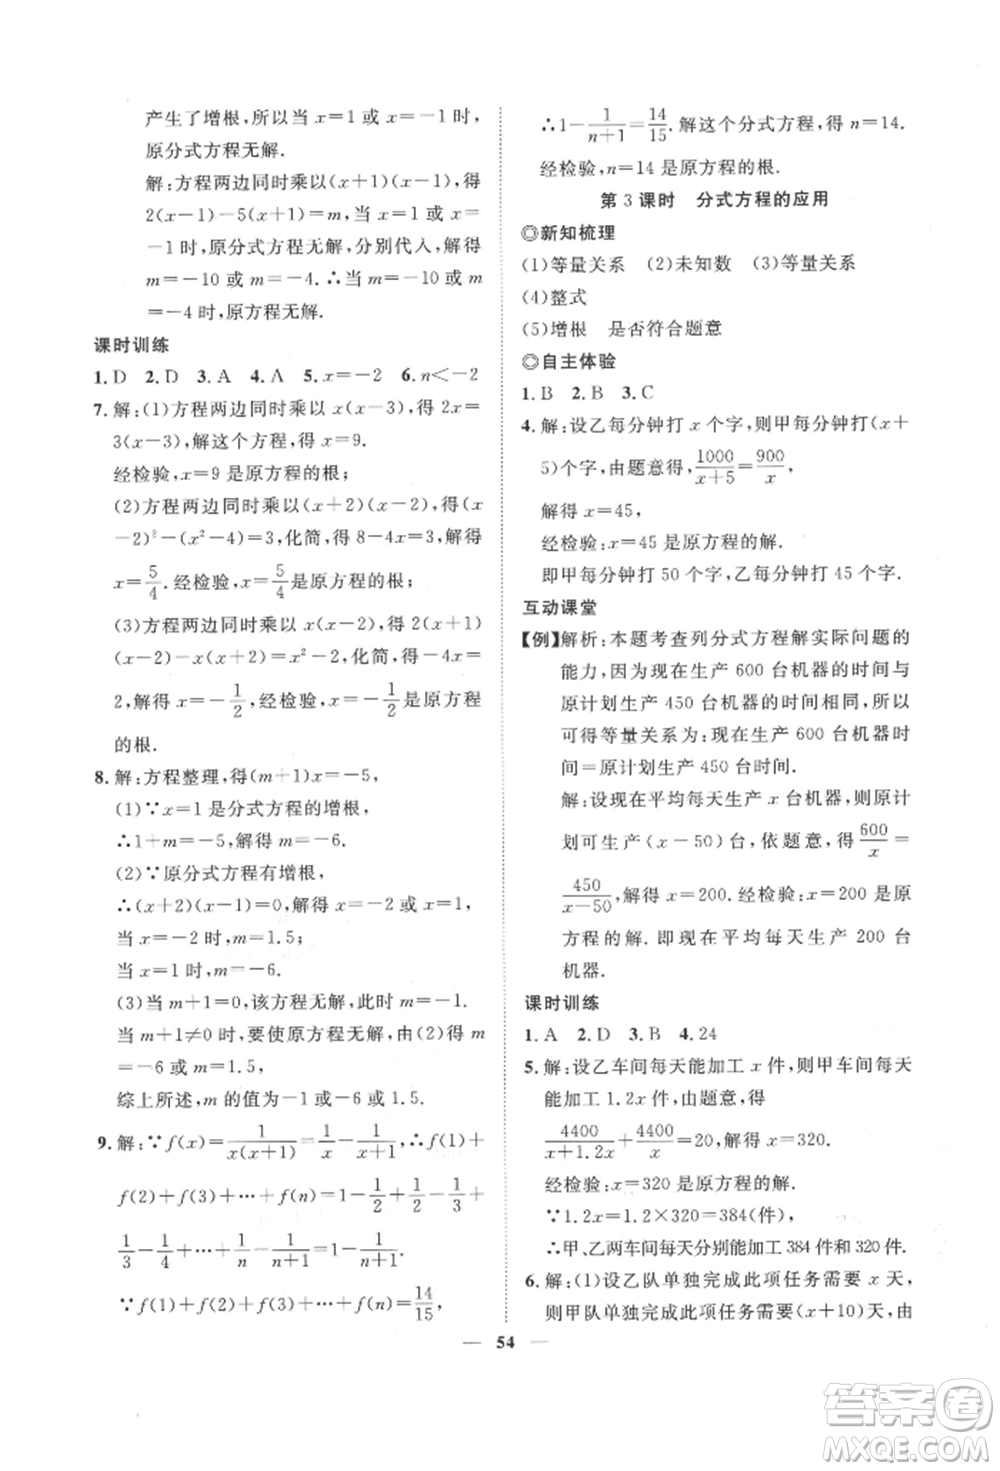 产生了增根,所以当 x=1 或 x=-1 时,
原分式方程无解.
解:方程两边同时乘以(x+1)(x-1),得
2(x-1)-5(x+1)=m,当 x=1 或 x=
-1 时,原分式方程无解,分别代入,解得
m=-10 或 m=-4.∴当 m=-10 或 m
=-4 时,原方程无解.
课时训练
1.D 2.D 3.A 4.A 5.x=-2 6.n<-2
7.解:(1)方程两边同时乘以 x(x-3),得 2x=
3(x-3),解这个方程,得 x=9.
经检验,x=9 是原方程的根;
(2)方程两边同时乘以(x+2)(x-2),得(x
-2)²-(x²-4)=3,化简,得 8-4x=3,解得
x=5/4.经检验,x=5/4是原方程的根;
(3)方程两边同时乘以 2(x+1),得 2(x+1)
(x-1)-2x(x+1)=x,化简,得-4x-x=
2,解得 x=-1/2,经检验,x=-1/2是原方程
的根.
8.解:方程整理,得(m+1)x=-5,
(1)∵x=1 是分式方程的增根,
∴1+m=-5,解得 m=-6.
(2)∵原分式方程有增根,
∴(x+2)(x-1)=0,解得 x=-2 或 x=1,
当 x=-2 时,m=1.5;
当 x=1 时,m=-6.
(3)当 m+1=0,该方程无解,此时 m=-1.
当 m+1≠0 时,要使原方程无解,由(2)得 m
=-6 或 m=1.5,
综上所述,m 的值为-1 或-6 或 1.5.
9.解:∵f(x)=1/(x(x+1))=1/x-1/(x+1),∴f(1)+
f(2)+f(3)+…+f(n)=1-1/2+1/2-
1/3+1/3-1/4+…+1/n-1/(n+1)=1-1/(n+1),
∵f(1)+f(2)+f(3)+…+f(n)=14/15,
∴1-1/(n+1)=14/15.解这个分式方程,得 n=14.
经检验,n=14 是原方程的根.
第 3 课时 分式方程的应用
◎新知梳理
(1)等量关系 (2)未知数 (3)等量关系
(4)整式
(5)增根 是否符合题意
◎自主体验
1.B 2.B 3.C
4.解:设乙每分钟打 x 个字,则甲每分钟打(x+
5)个字,由题意得,1000/(x+5)=900/x,
解得 x=45,
经检验:x=45 是原方程的解.
即甲每分钟打 50 个字,乙每分钟打 45 个字.
互动课堂
【例】解析:本题考查列分式方程解实际问题的
能力,因为现在生产 600 台机器的时间与
原计划生产 450 台机器的时间相同,所以
可得等量关系为:现在生产 600 台机器时
间=原计划生产 450 台时间.
解:设现在平均每天生产 x 台机器,则原计
划可生产(x-50)台,依题意,得600/x=
450/(x-50),解得 x=200.经检验:x=200 是原
方程的解.即现在平均每天生产 200 台
机器.
课时训练
1.A 2.D 3.B 4.24
5.解:设乙车间每天能加工 x 件,则甲车间每天
能加工 1.2x 件,由题意,得
4400/(x+1.2x)+4400/x=20,解得 x=320.
经检验:x=320 是原方程的解.
∵1.2x=1.2×320=384(件),
∴甲、乙两车间每天分别能加工 384 件和 320 件.
6.解:(1)设乙队单独完成此项任务需要 x 天,
则甲队单独完成此项任务需要(x+10)天,由
— 54 —
答案卷
MXQE.COM